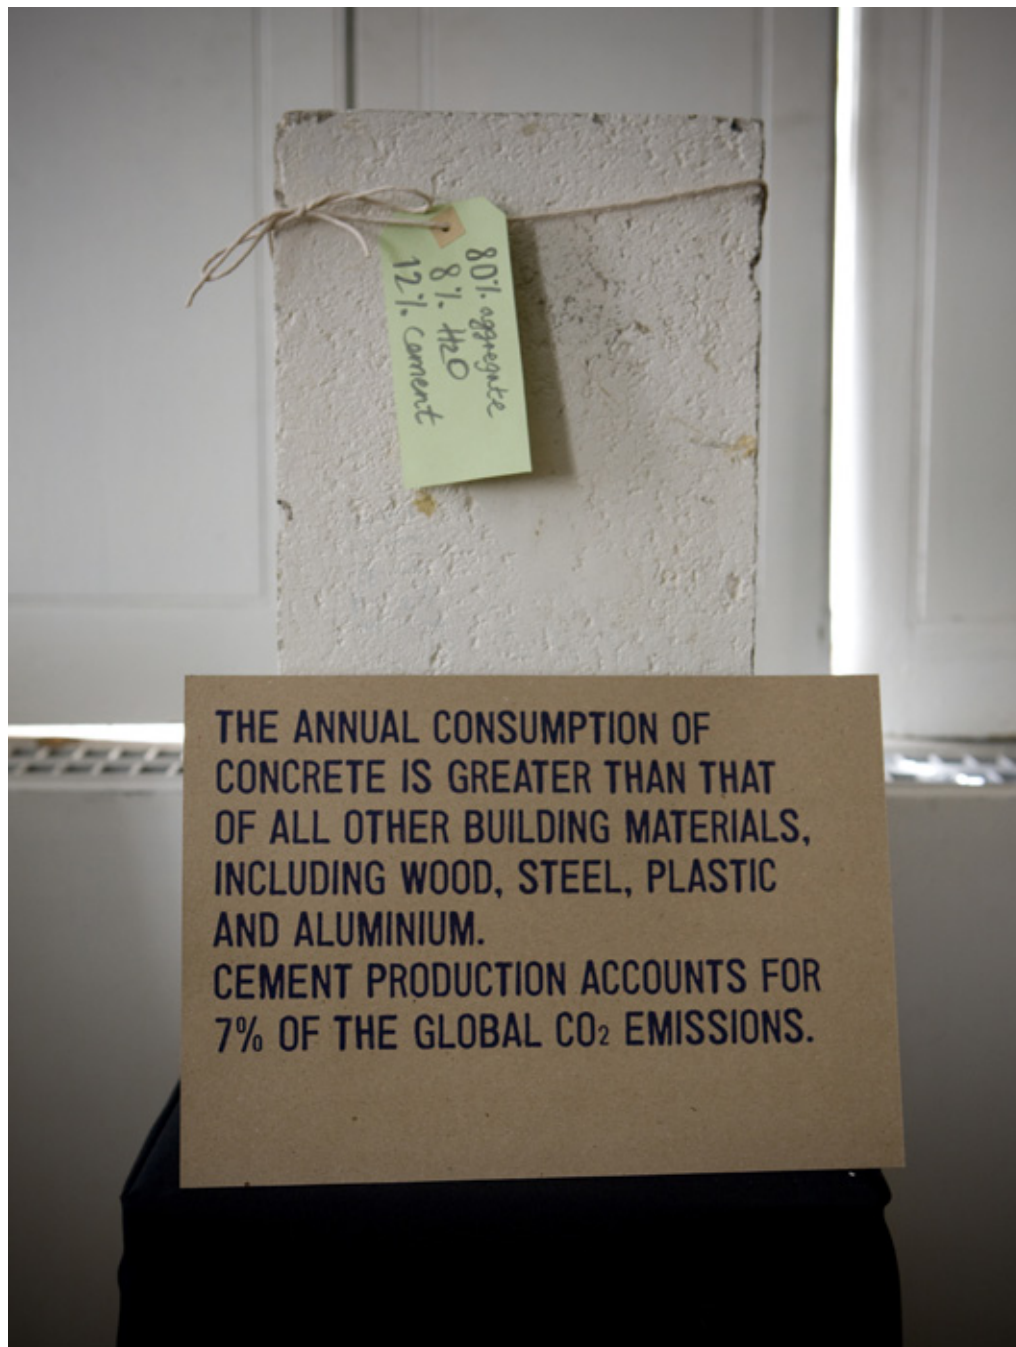 80% aggregate
8% H2O
12% cement
THE ANNUAL CONSUMPTION OF
CONCRETE IS GREATER THAN THAT
OF ALL OTHER BUILDING MATERIALS,
INCLUDING WOOD, STEEL, PLASTIC
AND ALUMINIUM.
CEMENT PRODUCTION ACCOUNTS FOR
7% OF THE GLOBAL CO₂ EMISSIONS.